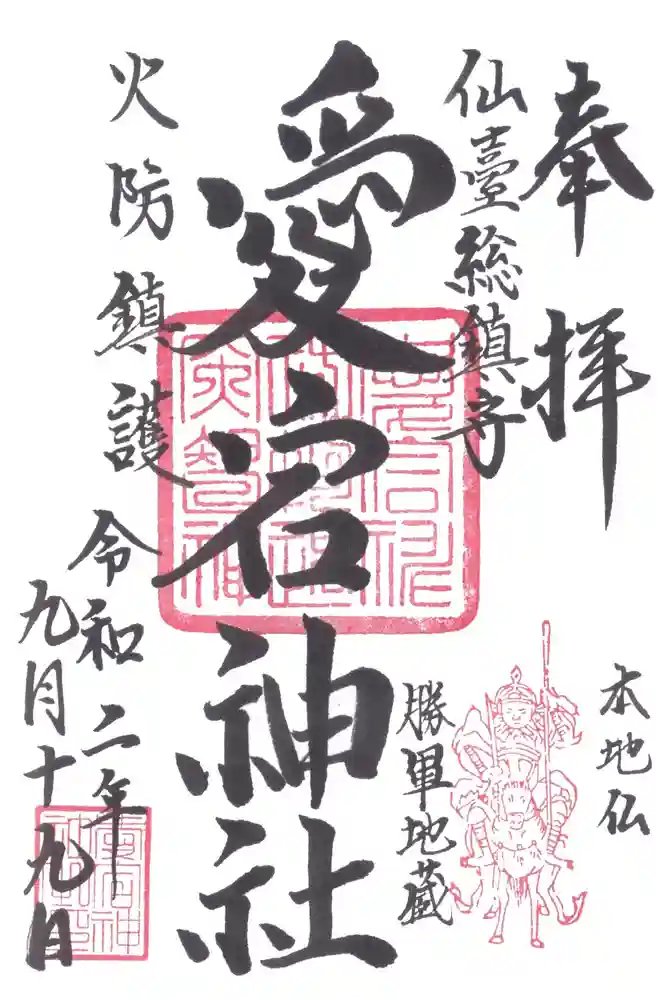 奉拝
仙臺総鎮守
愛宕神社
火防鎮護
本地仏
勝軍地蔵
令和二年
九月十九日